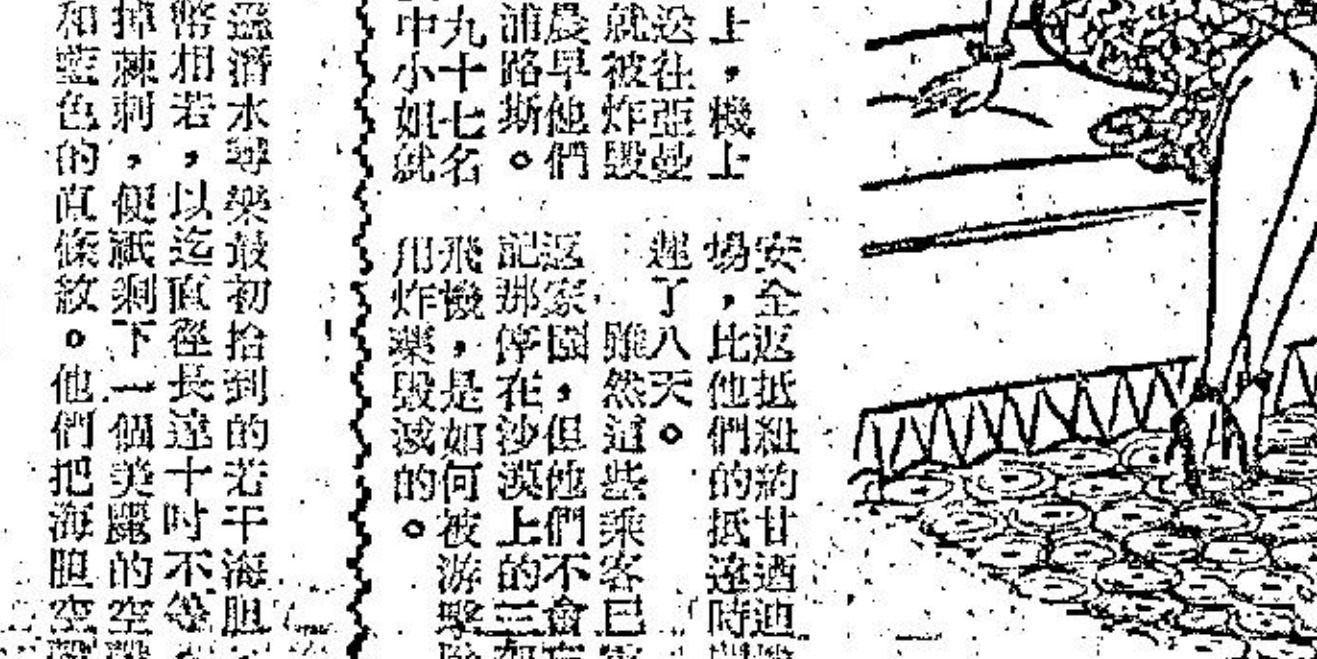 上，機上
送往亞曼
就被炸毀
晨早他們
浦路斯。
九十七名
中小姐就
安全返抵紐約甘迺迪
場，比他們的抵達時
遲了八天。
雖然這些乘客已
返家園，但他們不會
記那停在沙漠上的三
飛機，是如何被游擊
用炸藥毀滅的。
潛水尋樂最初拾到的若干海胆
幣相若，以迄直徑長達十吋不等，
掉棘刺，便祇剩下一個美麗的空
和藍色的直條紋。他們把海胆空